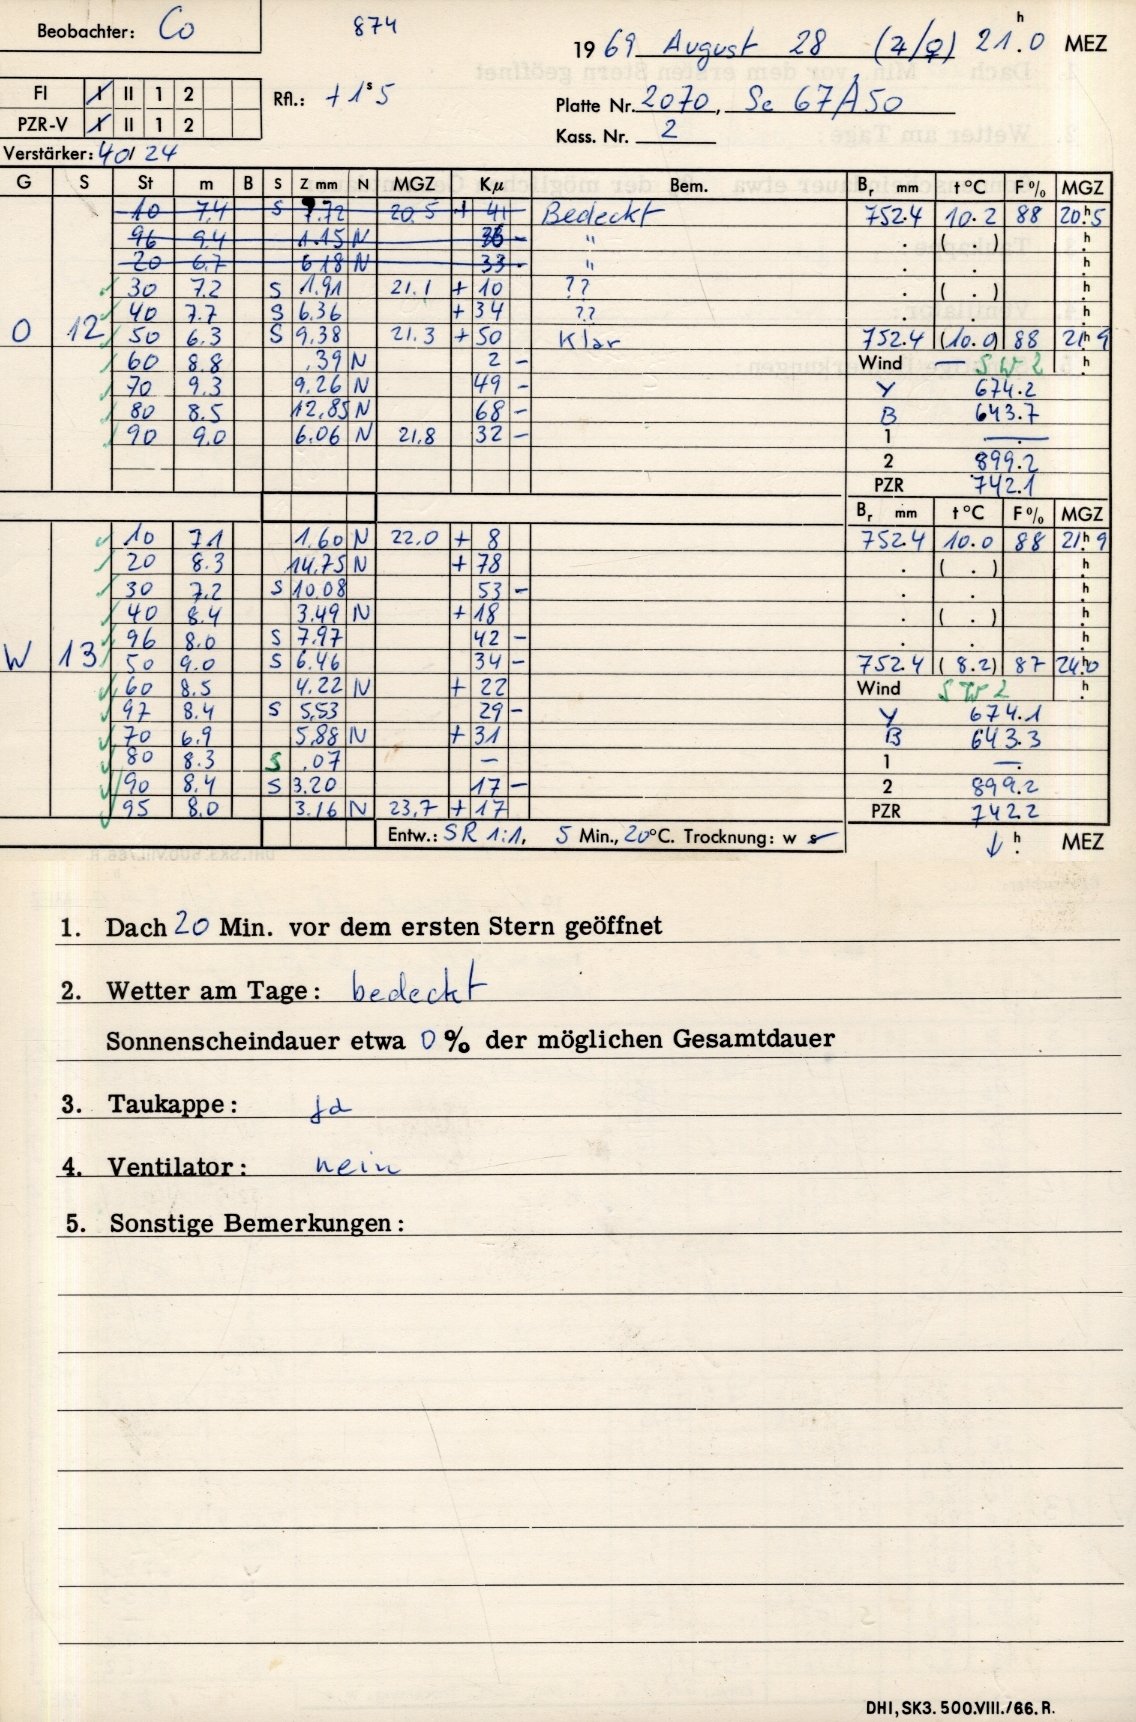 Beobachter: Co 874
19 69 August 28 (♃/♀) 21ʰ.0 MEZ
FI I II 1 2 Rfl.: +1ˢ5
Platte Nr. 2070, Sc 67A50
PZR-V I II 1 2
Kass. Nr. 2
Verstärker: 40/24
G S St m B S Z mm N MGZ Kμ Bem. Br mm t°C F% MGZ
10 7.4 S 7.72 20.5 + 41 Bedeckt 752.4 10.2 88 20ʰ.5
96 9.4 1.15 N - " . ( . ) ʰ.
20 6.7 6.18 N 33 - " . . ʰ.
30 7.2 S 1.91 21.1 + 10 ?? . ( . ) ʰ.
40 7.7 S 6.36 + 34 ?? . . ʰ.
O 12 50 6.3 S 9.38 21.3 + 50 Klar 752.4 (10.0) 88 21ʰ.9
60 8.8 .39 N 2 - Wind SW 2 ʰ.
70 9.3 9.26 N 49 - Y 674.2
80 8.5 12.85 N 68 - B 643.7
90 9.0 6.06 N 21.8 32 - 1 —.
2 899.2
PZR 742.1
Br mm t°C F% MGZ
10 7.1 1.60 N 22.0 + 8 752.4 10.0 88 21ʰ.9
20 8.3 14.75 N + 78 . ( . ) ʰ.
30 7.2 S 10.08 53 - . . ʰ.
40 8.4 3.49 N + 18 . ( . ) ʰ.
96 8.0 S 7.97 42 - . . ʰ.
W 13 50 9.0 S 6.46 34 - 752.4 (8.2) 87 24ʰ.0
60 8.5 4.22 N + 22 Wind SW 2 ʰ.
97 8.4 S 5.53 29 - Y 674.1
70 6.9 5.88 N + 31 B 643.3
80 8.3 S .07 — 1 —.
90 8.4 S 3.20 17 - 2 899.2
95 8.0 3.16 N 23.7 + 17 PZR 742.2
Entw.: SR 1:1, 5 Min., 20°C. Trocknung: w s ↓ ʰ. MEZ
1. Dach 20 Min. vor dem ersten Stern geöffnet
2. Wetter am Tage: bedeckt
Sonnenscheindauer etwa 0 % der möglichen Gesamtdauer
3. Taukappe: Ja
4. Ventilator: nein
5. Sonstige Bemerkungen:
DHI, SK3. 500.VIII./66. R.